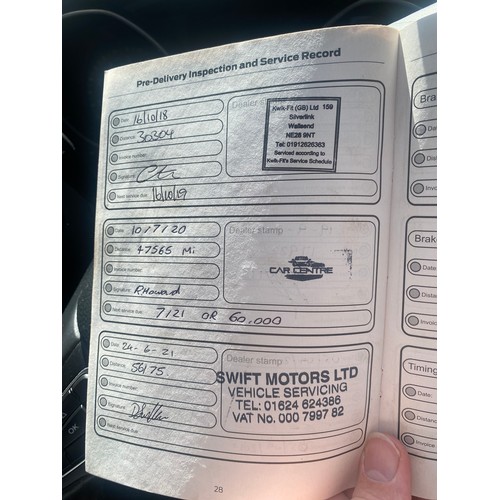 Pre-Delivery Inspection and Service Record
Date: 16/10/18
Distance: 30304
Invoice number:
Signature:
Next service due: 16/10/19
Dealer stamp
Kwik-Fit (GB) Ltd 159
Silverlink
Wallsend
NE28 9NT
Tel: 01912626363
Serviced according to
Kwik-Fit's Service Schedule
Date: 10/7/20
Distance: 47565 Mi
Invoice number:
Signature: R.Howard
Next service due: 7/21 OR 60,000
Dealer stamp
CAR CENTRE
Date: 24-6-21
Distance: 56175.
Invoice number:
Signature:
Next service due:
Dealer stamp
SWIFT MOTORS LTD
VEHICLE SERVICING
TEL: 01624 624386
VAT No. 000 7997 82
28
Bra
Da
Dist
Invoi
Brake
Date:
Distan
Invoice
Timing
Date:
Distanc
Invoice
OK